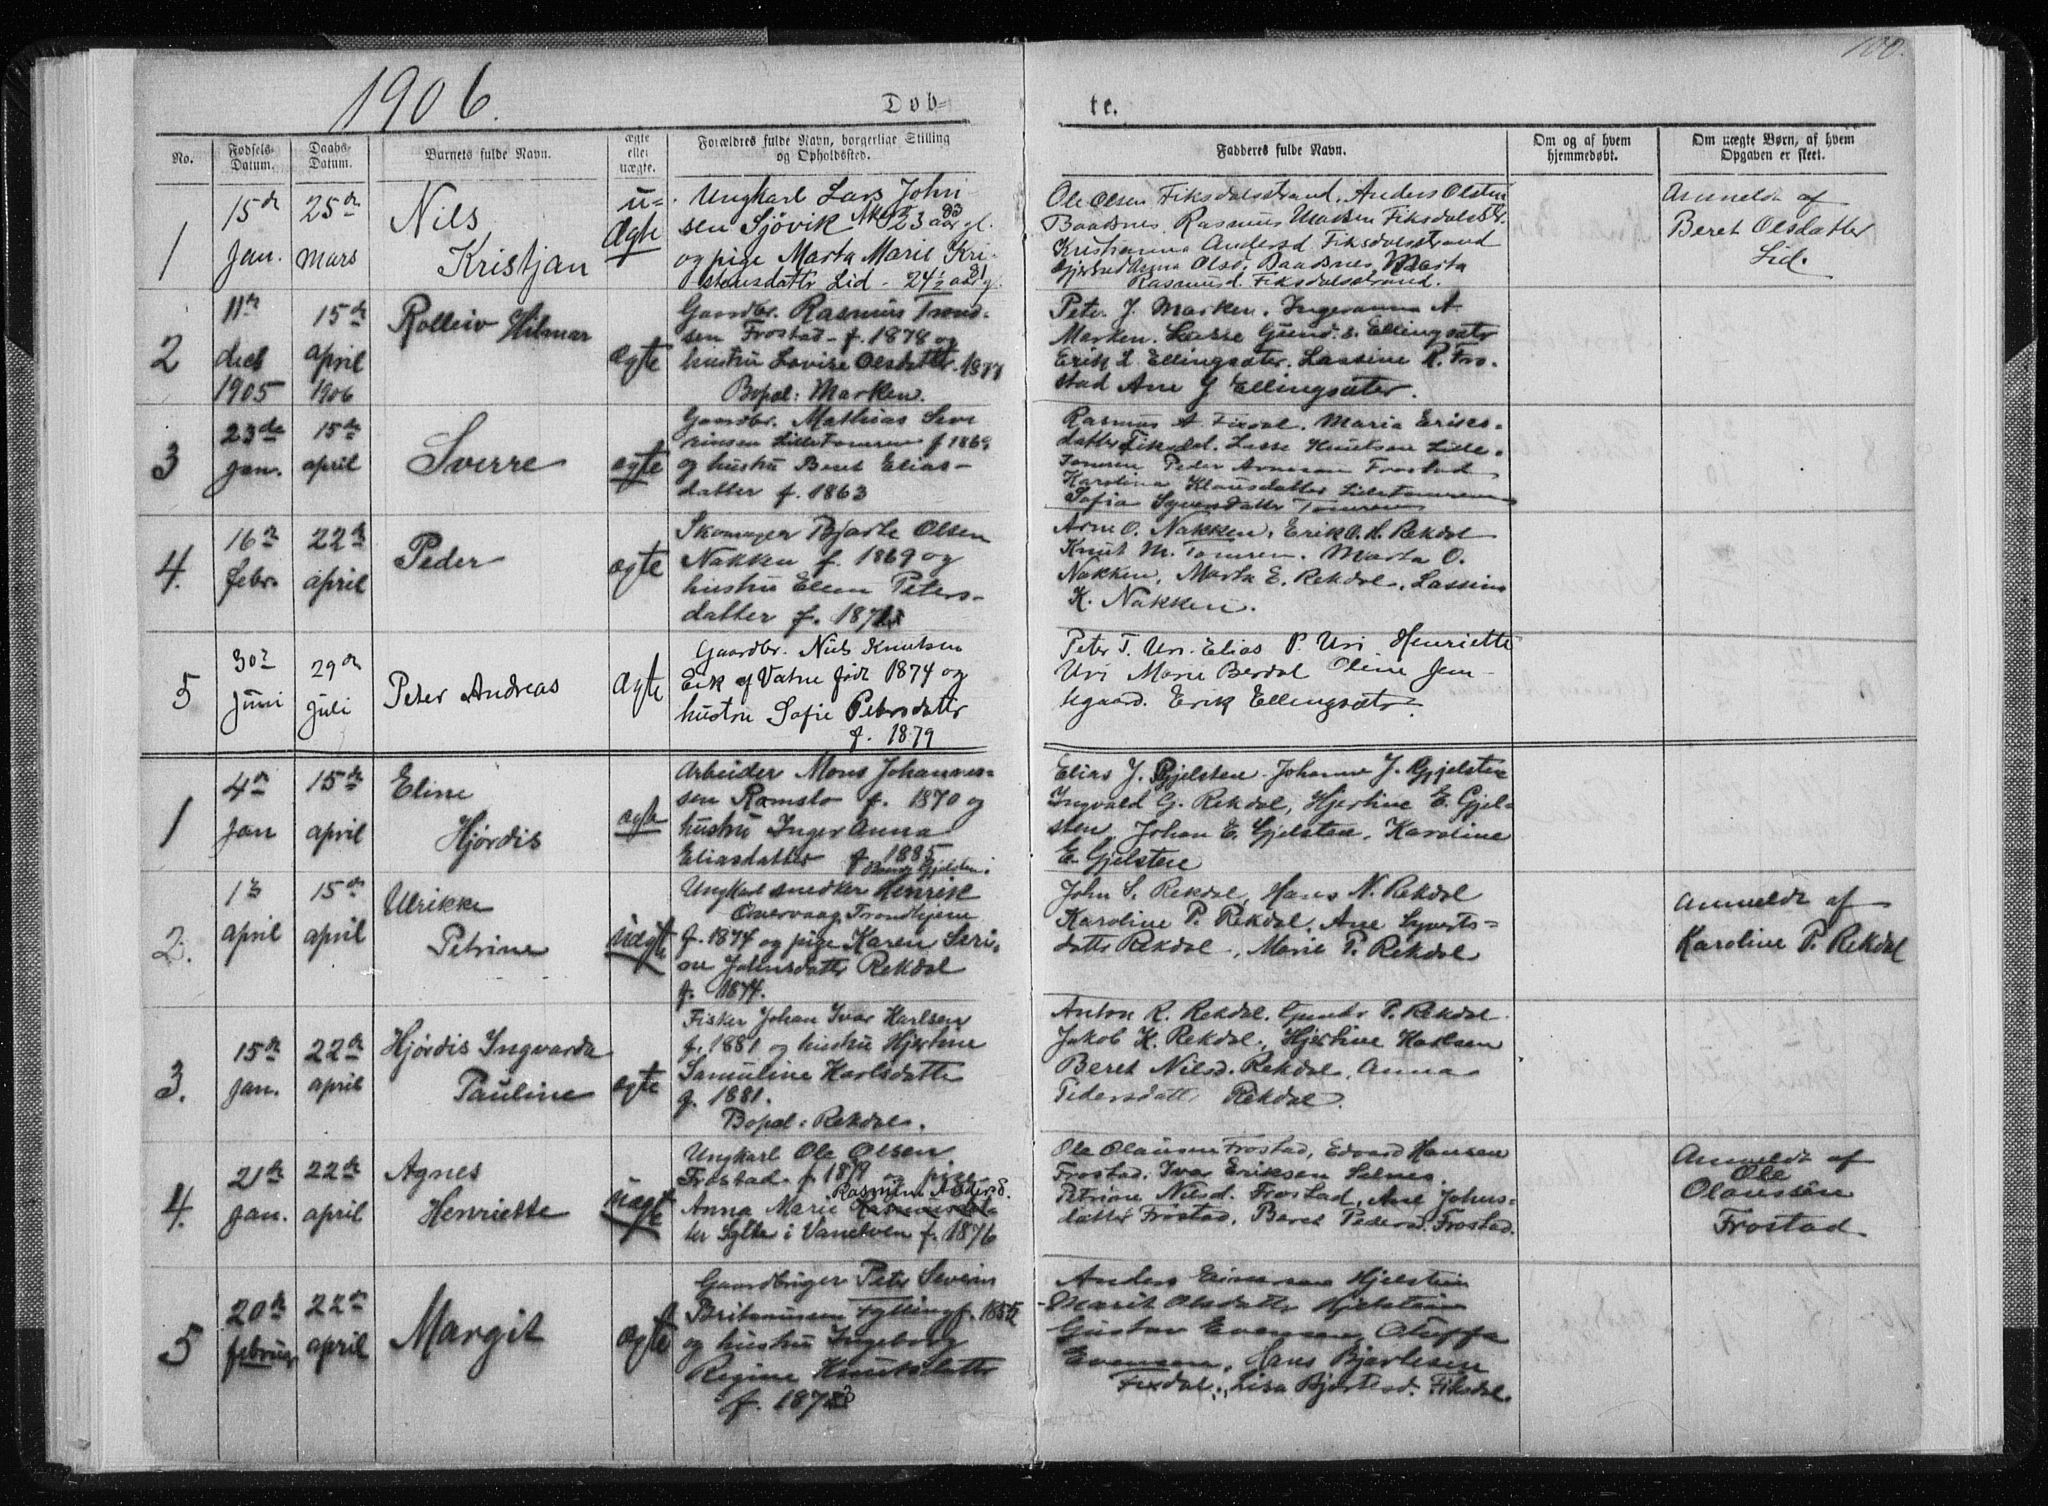 100.
1906.
Døb-
te.
No.
Fødsels-
Datum.
Daabs-
Datum.
Barnets fulde Navn.
ægte
eller
uægte.
Forældres fulde Navn, borgerlige Stilling
og Opholdssted.
Fadderes fulde Navn.
Om og af hvem
hjemmedøbt.
Om uægte Børn, af hvem
Opgaven er skeet.
1
15de
Jan.
25de
Mars
Nils
Kristjan
u-
ægte
Ungkarl Lars John
sen Sjövik 23 aar gl. 83
og pige Marta Marie Kri-
stensdatter Lid - 24½ aar g. 81
Ole Olsen Fiksdalsstrand, Anders Olsen
Baadsnes. Rasmus Madsen Fiksdalstr.
Kristianna Andersd. Fiksdalsstrand
Olsd. Baadsnes, Marta
Rasmusd. Fiksdalsstrand.
Anmeldt af
Beret Olsdatter
Lid.
2
11te
decb
1905
15de
april
1906
Rolleiv Hilmar
ægte
Gaardbr. Rasmus Trond-
sen Frostad - f. 1878 og
hustru Lovise Olsdatter.
Bopæl: Marken.
Peter J. Marken. Ingeranna A
Marken. Lasse Gund. E. Ellingsæter
Erik L. Ellingsæter. Lassine R. Fro-
stad Ane J Ellingsæter.
3
23de
jan.
15de
april
Sverre
ægte
Gaardbr. Mathias Seve
rinsen Lilletomren f 1869
og hustru Beret Elias-
datter f. 1863
Rasmus A Fixdal. Maria Eriks-
datter Fiksdal. Lasse Knutsen Lille-
Tomren Peder Arnesen Frostad
Karolina Klausdatter Lilletomren
Sofia Syversdatter Tomren
4.
16de
febr.
22de
april
Peder
ægte
Skomager Bjarte Olsen
Nakken f. 1869 og
hustru Elen Peters-
datter f.
Arne O. Nakken, Erik O. H. Rekdal
Knut M. Tomren. Marta O.
Nakken, Marta E. Rekdal, Lassine
K. Nakken.
5
30te
Juni
29de
Juli
Peter Andreas
ægte
Gaardbr. Nils Knutsen
Eik af Vatne født 1874 og
hustru Sofie Petersdatter
f. 1879
Peter T. Uri. Elias P. Uri. Henriette
Uri Marie Berdal Oline Jem-
tegaard. Erik Ellingsæter.
1
4de
Jan
15de
april
Eline
Hjørdis
ægte
Arbeider Mons Johannes-
sen Ramslo f. 1870 og
hustru Inger Anna
Eliasdatter f 1885
Gjelsten.
Elias J. Gjelsten. Johanne J. Gjelsten
Ingvald G. Rekdal, Hjertine E. Gjel-
sten, Johan E. Gjelsten, Karoline
E. Gjelsten
2.
1ste
april
15de
april
Ulrikke
Petrine
uægte
Ungkarl snedker Henrik
Overvaag, Trondhjem
f. 1874 og pige Karen Seri-
ne Johnsdatter Rekdal
f. 1874.
John S. Rekdal, Hans N. Rekdal
Karoline P. Rekdal, Ane Syverts-
datter Rekdal, Marie P. Rekdal
Anmeldt af
Karoline P. Rekdal
3.
15de
jan.
22de
april
Hjørdis Ingvarda
Pauline
ægte
Fisker Johan Ivar Karlsen
f. 1881 og hustru Hjertine
Samuline Karlsdatter
f. 1881.
Bopæl: Rekdal.
Anton R. Rekdal. Gunder P. Rekdal
Jakob K. Rekdal, Hjertine Karlsen
Beret Nilsd. Rekdal, Anna
Pedersdatter Rekdal.
4.
21de
jan.
22de
april
Agnes
Henriette
uægte
Ungkarl Ole Olsen
Frostad f 1879 og pige
Rasmine Andersd.
Anna Marie Rasmusdat-
ter Sylte i Vanelven f. 1876
Ole Olausen Frostad, Edvard Hansen
Frostad. Ivar Eriksen Selnes,
Petrine Nilsd. Frostad, Ane Johns-
datter Frostad, Beret Pedersd. Frostad.
Anmeldt af
Ole
Olaussen
Frostad
5
20de
februar
22de
april
Margit
ægte
Gaardbruger Peter Severin
Britanussen Fylling f.
og hustru Ingeborg
Regine Knutsdatter
f. 1873
Anders Einersen Hjelstein
Marit Olsdatter Hjelstein
Gustav Evensen, Oluffa
Evensen, Hans Bjartesen
Fixdal, Lisa Bjartesd. Fiksdal.